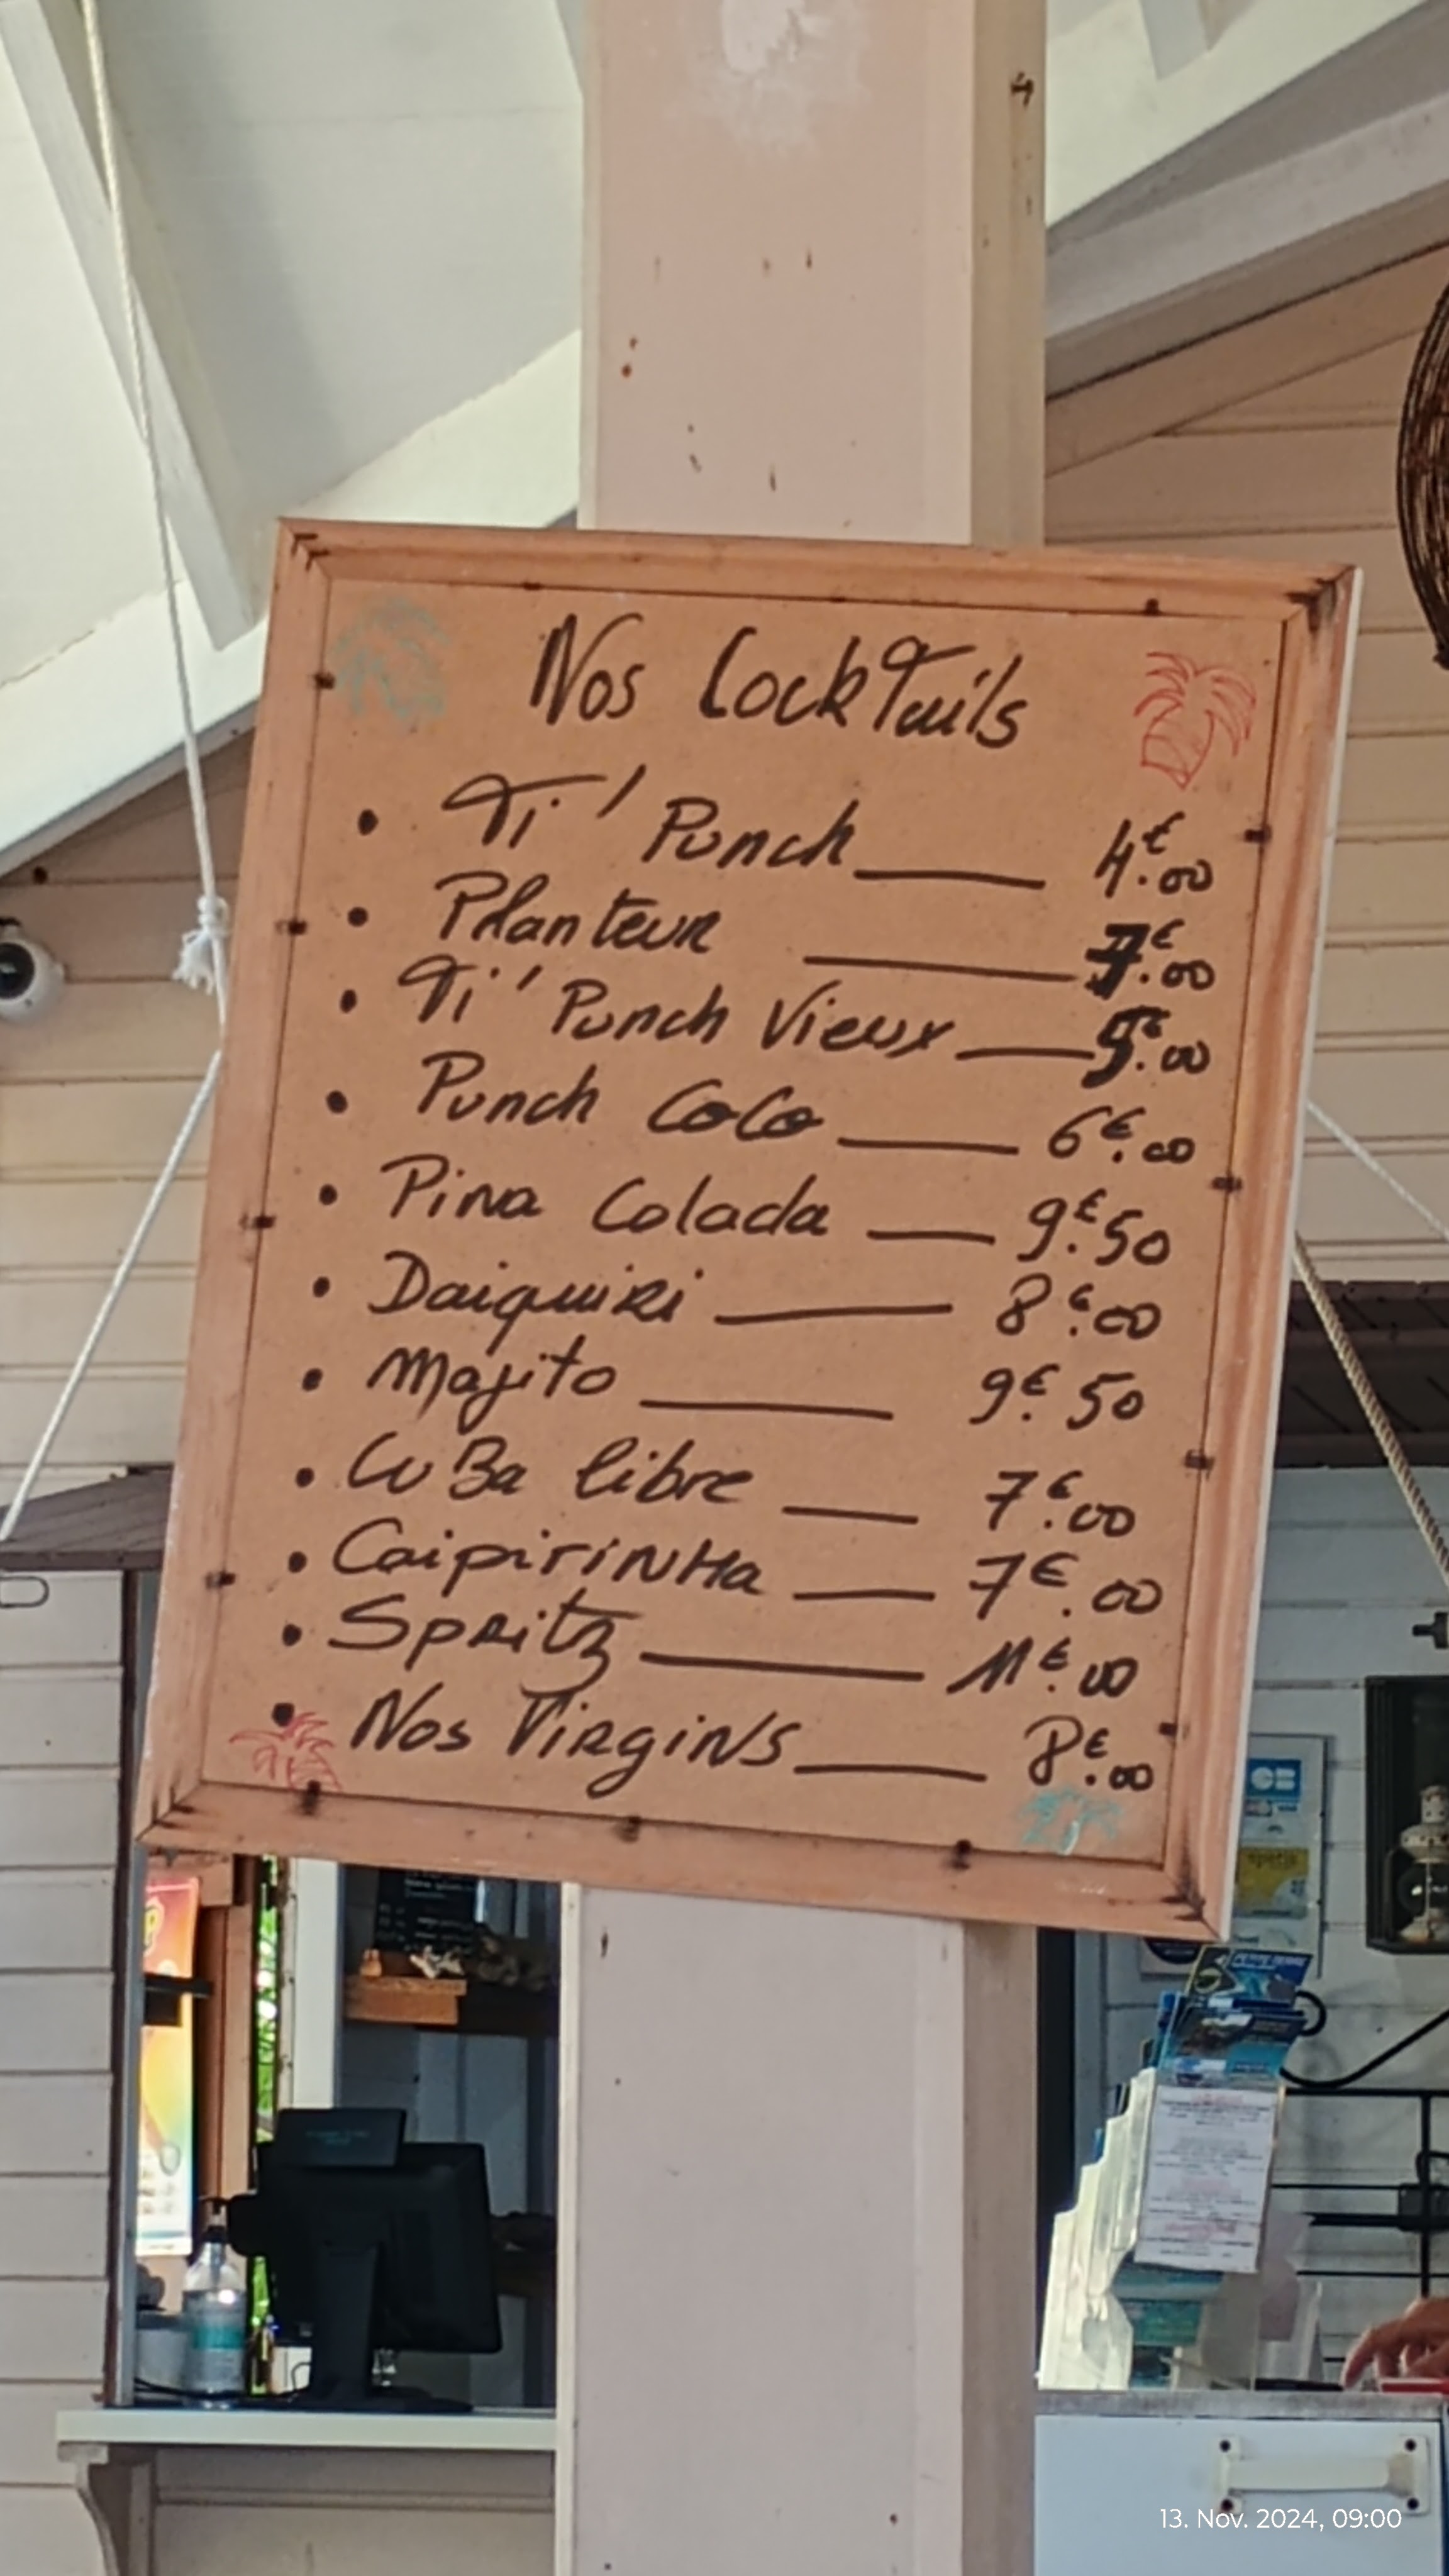 Nos Cocktails
• Ti' Punch ___ 4€.00
• Planteur ___ 7€.00
• Ti' Punch Vieux ___ 5€.00
• Punch CoCo ___ 6€.00
• Pina Colada ___ 9€.50
• Daiquiri ___ 8€.00
• Mojito ___ 9€.50
• CuBa libre ___ 7€.00
• CaipiriNHa ___ 7€.00
• Spritz ___ 11€.00
• Nos VirgiNs ___ 8€.00
CB
13. Nov. 2024, 09:00